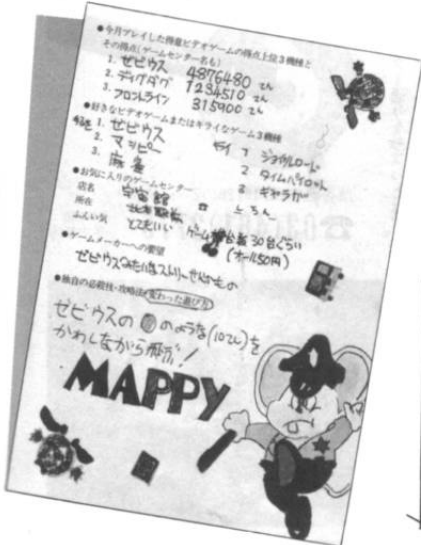 ●今月プレイした得意ビデオゲームの得点上位3機種と
その得点(ゲームセンター名も)
1. ゼビウス 4876480 てん
2. ディグダグ 1234510 てん
3. フロントライン 315900 てん
●好きなビデオゲームまたはキライなゲーム3機種
1. ゼビウス
2. マッピー
3. 麻雀
キライ 1 ジョウルロード
2 タイムパイロット
3 ギャラガ
●お気に入りのゲームセンター
店名 宇宙館
所在
ふんい気 とてもいい ゲーム 台数30台ぐらい
(オール50円)
●ゲームメーカーへの要望
ゼビウスみたいなストーリーせいのもの
●独自の必殺技・攻略法 変わった遊び方
ゼビウスの のような(10てん)を
かわしながら飛ぶ!
MAPPY